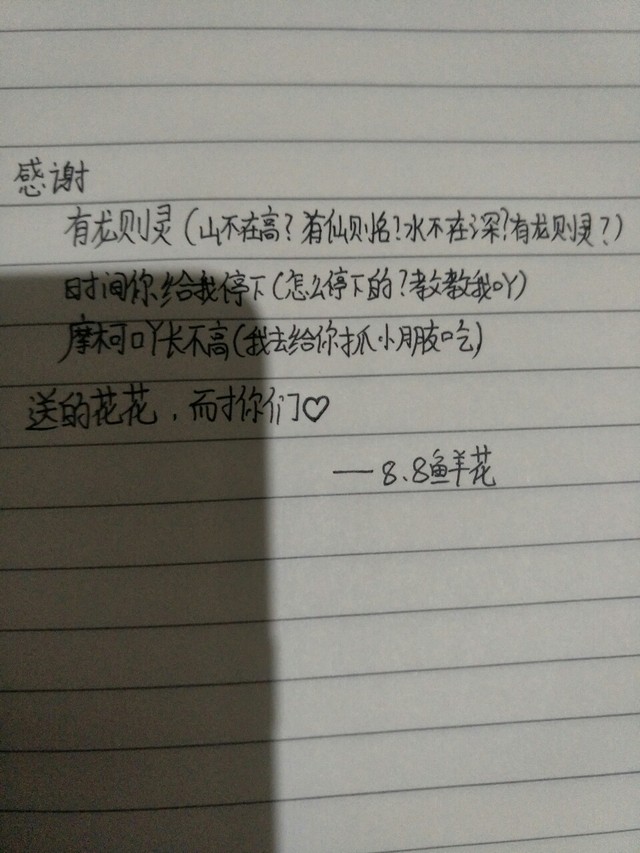 感谢
有龙则灵(山不在高?有仙则名!水不在深?有龙则灵?)
时间你给我停下(怎么停下的?教教我吖)
摩柯吖长不高(我去给你抓小朋友吃)
送的花花,耐你们♡
—8.8鲜花